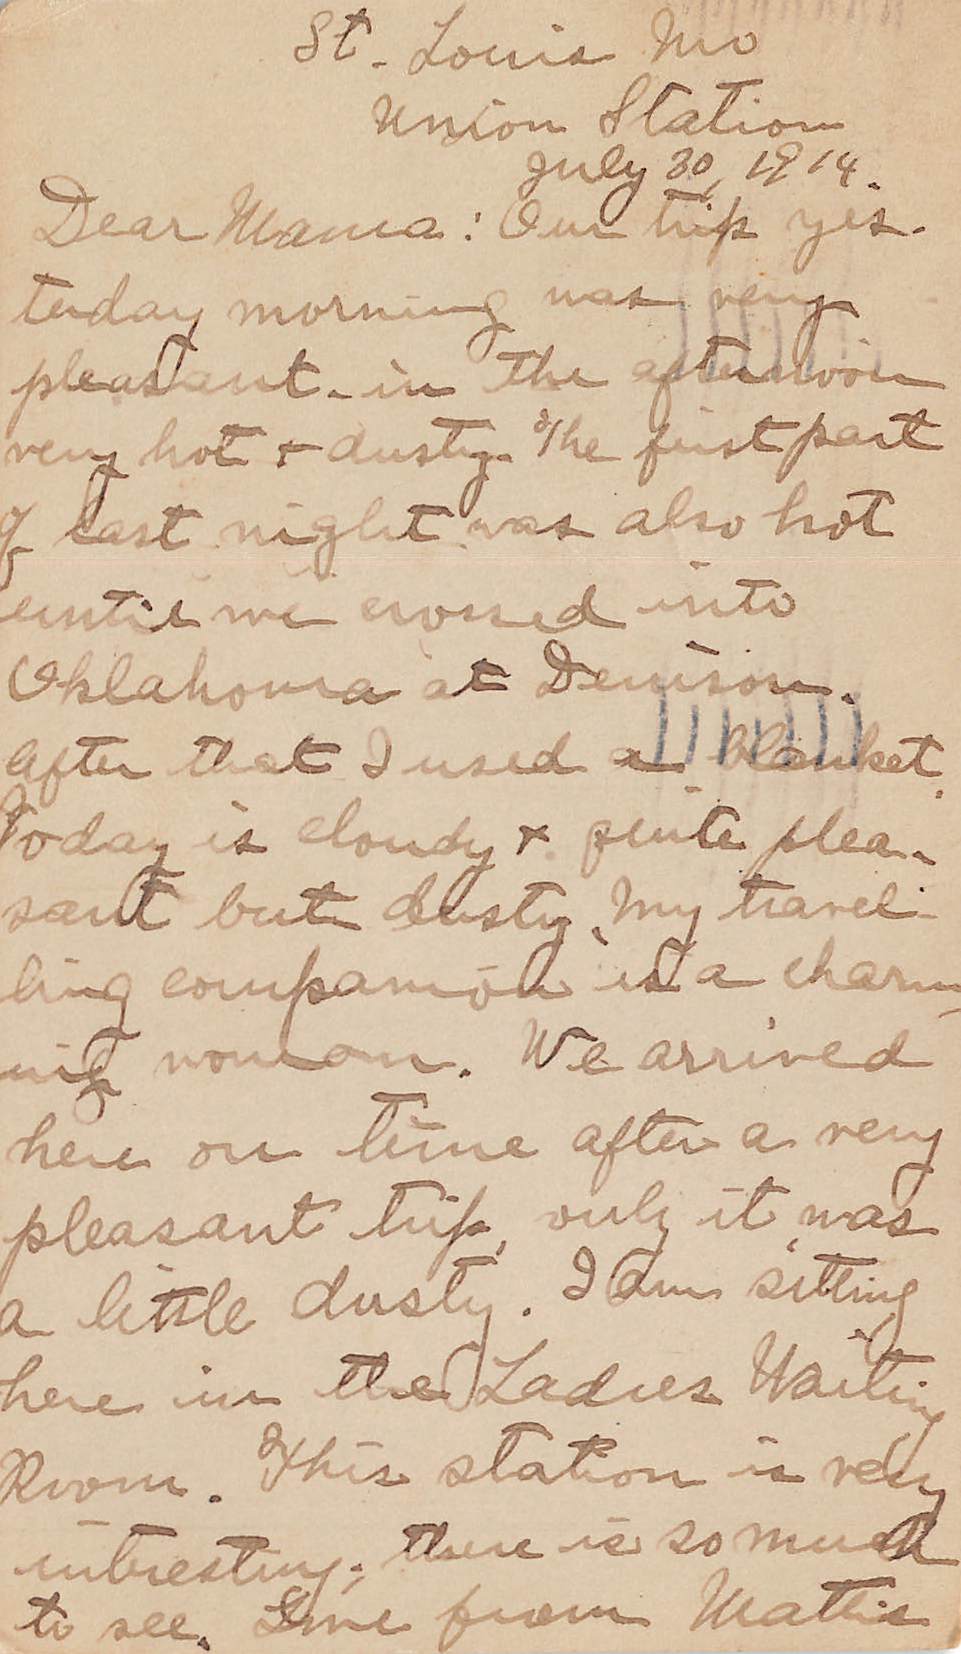 St. Louis Mo
Union Station
July 30, 1914.
Dear Mama: Our trip yes-
terday morning was very
pleasant - in the afternoon
very hot + dusty. The first part
of last night was also hot
until we crossed into
Oklahoma at Denison.
After that I used a blanket.
Today is cloudy + quite plea-
sant but dusty. My travel-
ling companion is a charm-
ing woman. We arrived
here on time after a very
pleasant trip, only it was
a little dusty. I am sitting
here in the Ladies Waiting
Room. This station is very
intresting; there is so much
to see. Love from Mattie